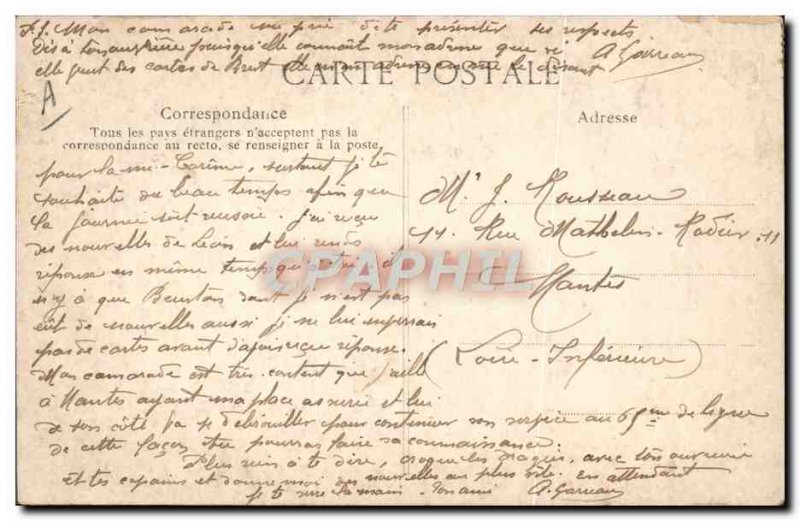 P.S. Mon camarade me prie de te présenter ses respects
Dis à ton ouvrière puisqu'elle connaît mon adresse que si
elle veut des cartes de Brest elle m'en adresse une le disant A. Garreau
CARTE POSTALE
A
Correspondance
Tous les pays étrangers n'acceptent pas la
correspondance au recto, se renseigner à la poste.
Adresse
pour la mi-Carême, surtout je te
souhaite du beau temps afin que
la journée soit réussie. J'ai reçu
des nouvelles de Léon et lui rends
réponse en même temps qu'à toi il
n'y a que dont je n'ai pas
eût de nouvelles aussi je ne lui enverrai
pas de cartes avant d'avoir reçu réponse.
Mon camarade est très content que j'aille
à Nantes ayant ma place assurée et lui
de son côté va se débrouiller pour continuer son service au 65ème de ligne
de cette façon tu pourras faire sa connaissance.
Plus rien à te dire, croque les Dragées, avec ton ouvrière
et tes copains et donne moi des nouvelles au plus vite. En attendant
je te serre la main. Ton ami A. Garreau
Mr J. Rousseau
11. Rue Mathelin-Rodier. 11
Nantes
(Loire-Inférieure)
CPAPHIL